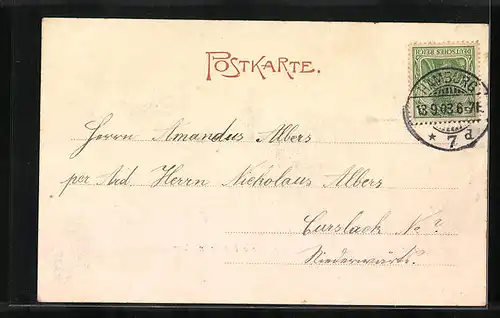 POSTKARTE.
DEUTSCHES REICH
HAMBURG
13.9.03.6-7N.
* 7 d
Herrn Amandus Albers
per Ad. Herrn Nicholaus Albers
Curslack No ?
Niederwärts.